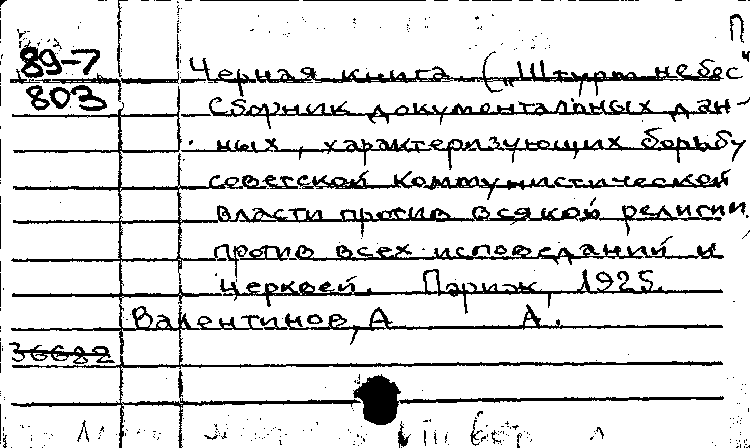 П
89-7
803
Черная книга („Штурм небес"
Сборник документальных дан-
ных, характеризующих борьбу
советской коммунистической
власти против всякой религии,
против всех исповеданий и
церквей. Париж, 1925.
Валентинов, А А.
36682